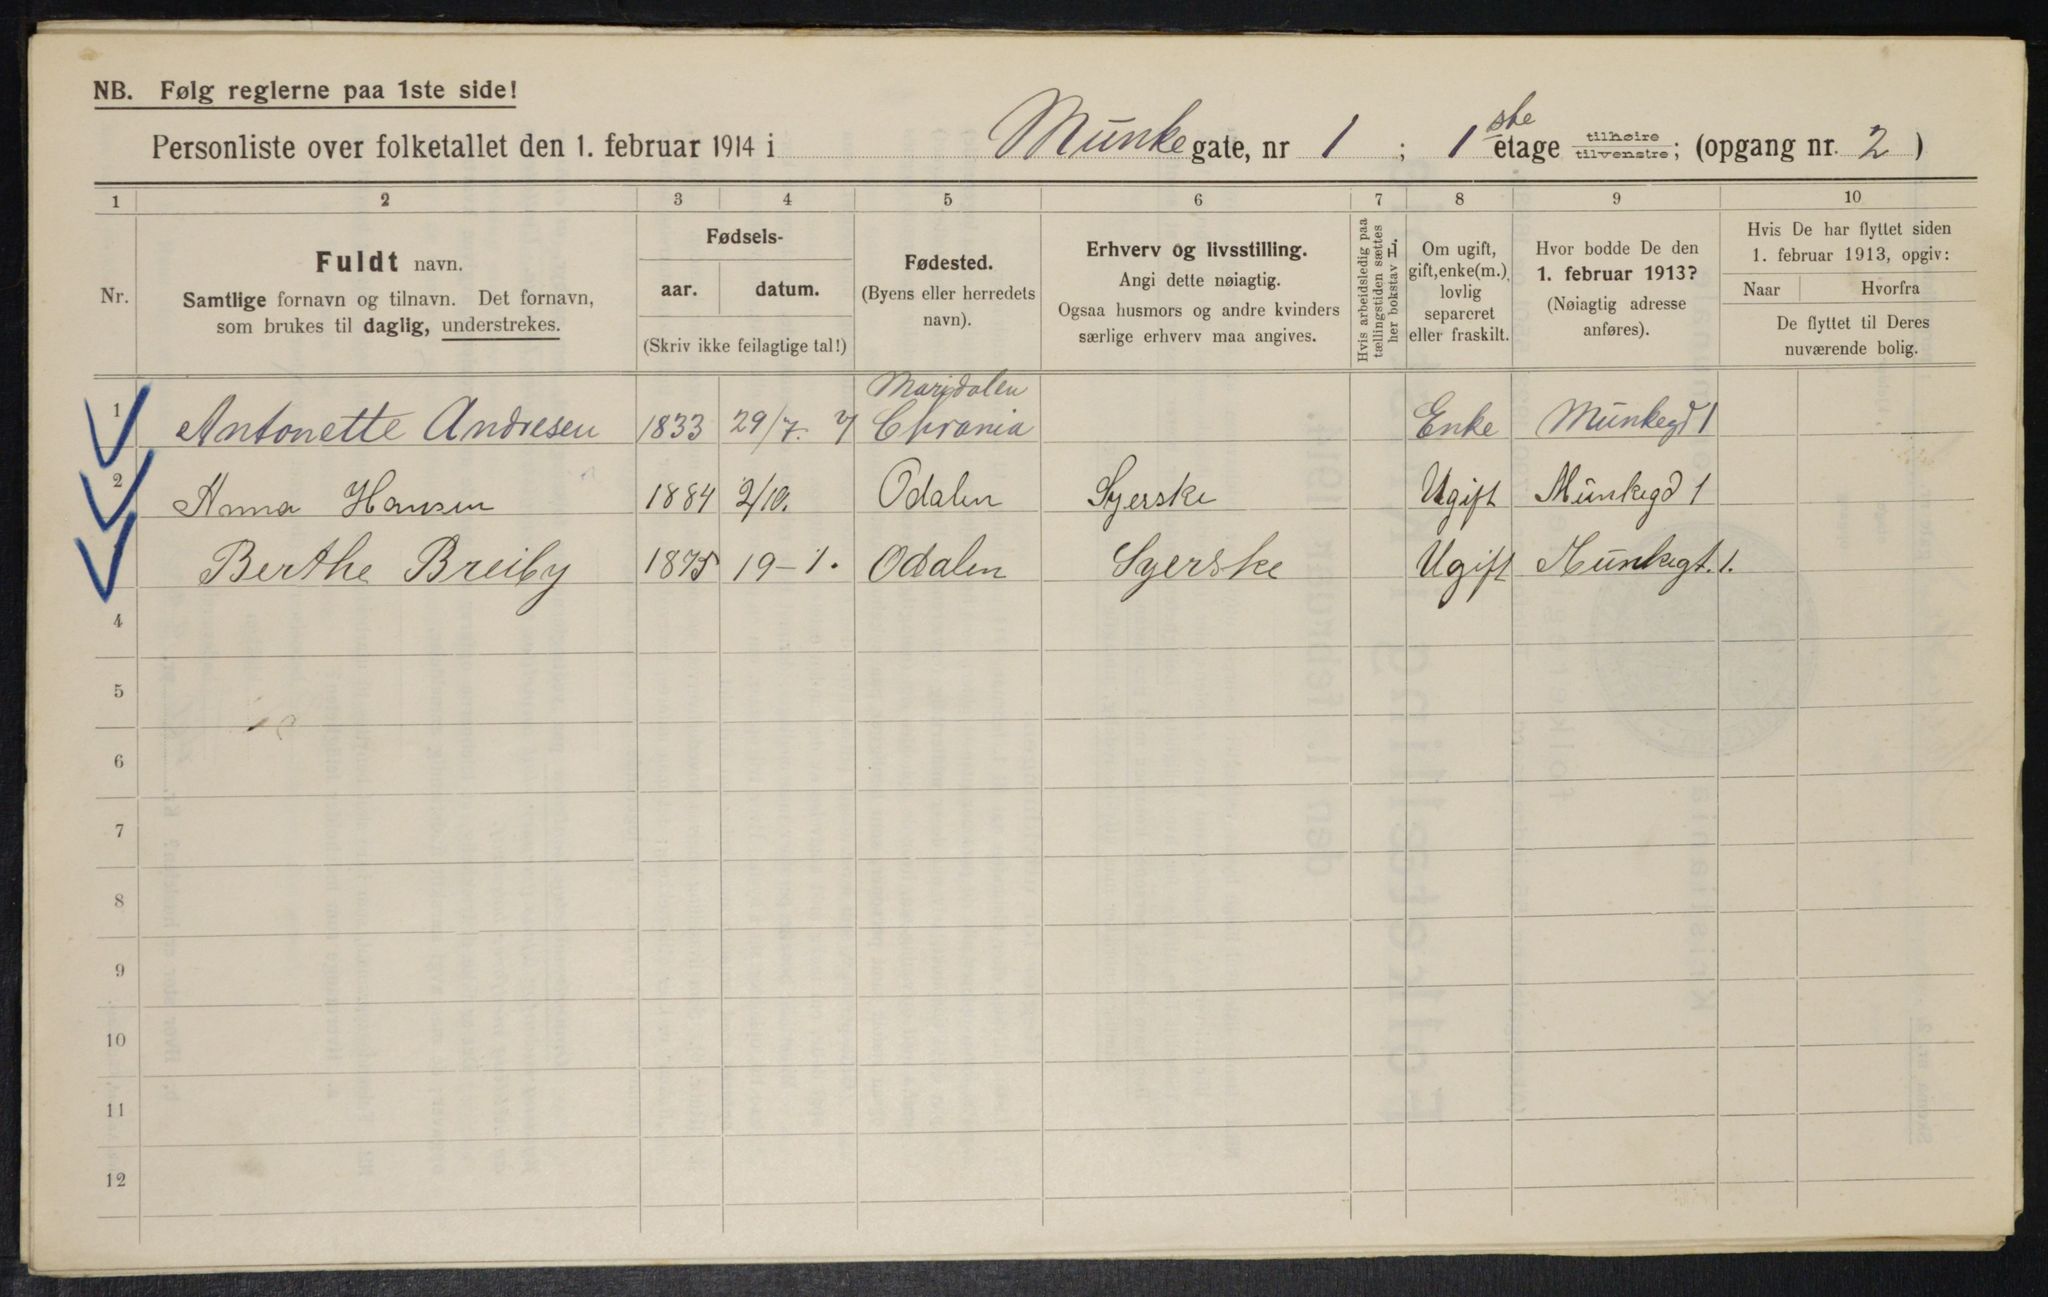 NB. Følg reglerne paa 1ste side!
Personliste over folketallet den 1. februar 1914 i Munkegate, nr 1 ; 1ste etage tilhøire tilvenstre; (opgang nr. 2 )
1 2 3 4 5 6 7 8 9 10
Nr.
Fuldt navn.
Samtlige fornavn og tilnavn. Det fornavn,
som brukes til daglig, understrekes.
Fødsels-
aar. datum.
(Skriv ikke feilagtige tal!)
Fødested.
(Byens eller herredets
navn).
Erhverv og livsstilling.
Angi dette nøiagtig.
Ogsaa husmors og andre kvinders
særlige erhverv maa angives.
Hvis arbeidsledig paa
tællingstiden sættes
her bokstav H.
Om ugift,
gift, enke(m.),
lovlig
separeret
eller fraskilt.
Hvor bodde De den
1. februar 1913?
(Nøiagtig adresse
anføres).
Hvis De har flyttet siden
1. februar 1913, opgiv:
Naar Hvorfra
De flyttet til Deres
nuværende bolig.
Maridalen
1 Antonette Andresen 1833 29/7. Chrania Enke Munkegd 1
2 Anna Hansen 1884 2/10. Odalen Syerske Ugift Munkegd 1
Berthe Breiby 1875 19-1. Odalen Syerske Ugift Munkegt. 1.
4
5
6
7
8
9
10
11
12